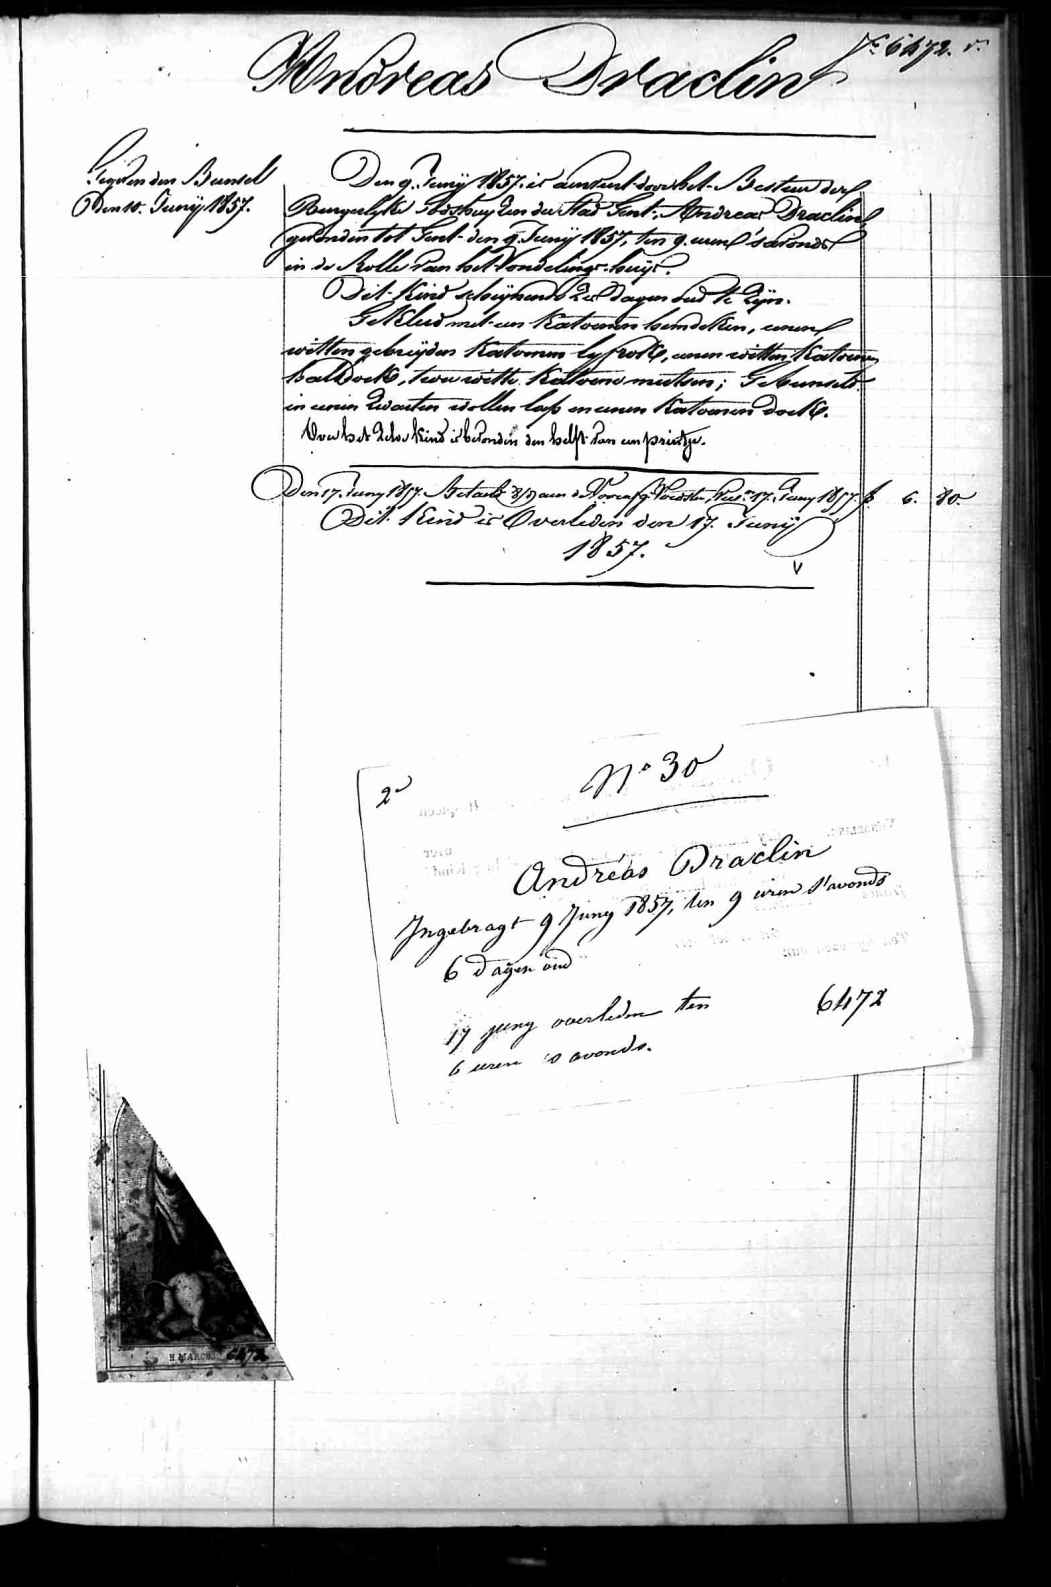 Nº 6472. v.
Andreas Draclin
Gegeven den Bunsel
Den 10. Junij 1857.
Den 9. Junij 1857. is aenveert door het Bestuer der
Burgerlyke Godshuyzen der Stad Gent. Andreas Draclin
gevonden tot Gent den 9. Junij 1857, ten 9. uren 's avonds
in de Rolle van het Vondelings-huys.
Dit Kind schijnende zes dagen oud te Zijn.
Gekleed met een Katoenen hemdeken, eenen
witten gebreyden Katoenen lyfrok, eenen witten Katoenen
halsdoek, twee witte Katoene mutsen; Gebunseld
in eenen Zwarten wollen lap en eenen Katoenen doek.
Voor het Zelve Kind is bevonden den helft van een printje.
Den 17. Juny 1857. Betaeld aen de Voedster 17. Juny 1857. fr. 6. 80.
Dit Kind is Overleden den 17. Junij
1857.
V
2e
Nº 30
Andréas Draclin
Ingebragt 9 Juny 1857, ten 9 uren s'avonds
6 dagen oud
17 juny overleden ten
6 uren 's avonds.
6472
6472